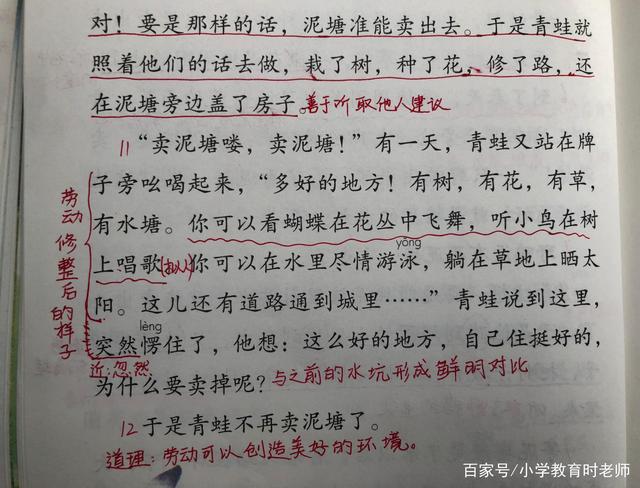 对！要是那样的话，泥塘准能卖出去。于是青蛙就
照着他们的话去做，栽了树，种了花，修了路，还
在泥塘旁边盖了房子。善于听取他人建议
11“卖泥塘喽，卖泥塘！”有一天，青蛙又站在牌
子旁吆喝起来，“多好的地方！有树，有花，有草，
有水塘。你可以看蝴蝶在花丛中飞舞，听小鸟在树
yǒng
上唱歌(拟人)你可以在水里尽情游泳，躺在草地上晒太
阳。这儿还有道路通到城里……”青蛙说到这里，
lèng
突然愣住了，他想：这么好的地方，自己住挺好的，
近：忽然
为什么要卖掉呢？与之前的水坑形成鲜明对比
12于是青蛙不再卖泥塘了。
道理：劳动可以创造美好的环境。
劳动修整后的样子
百家号/小学教育时老师